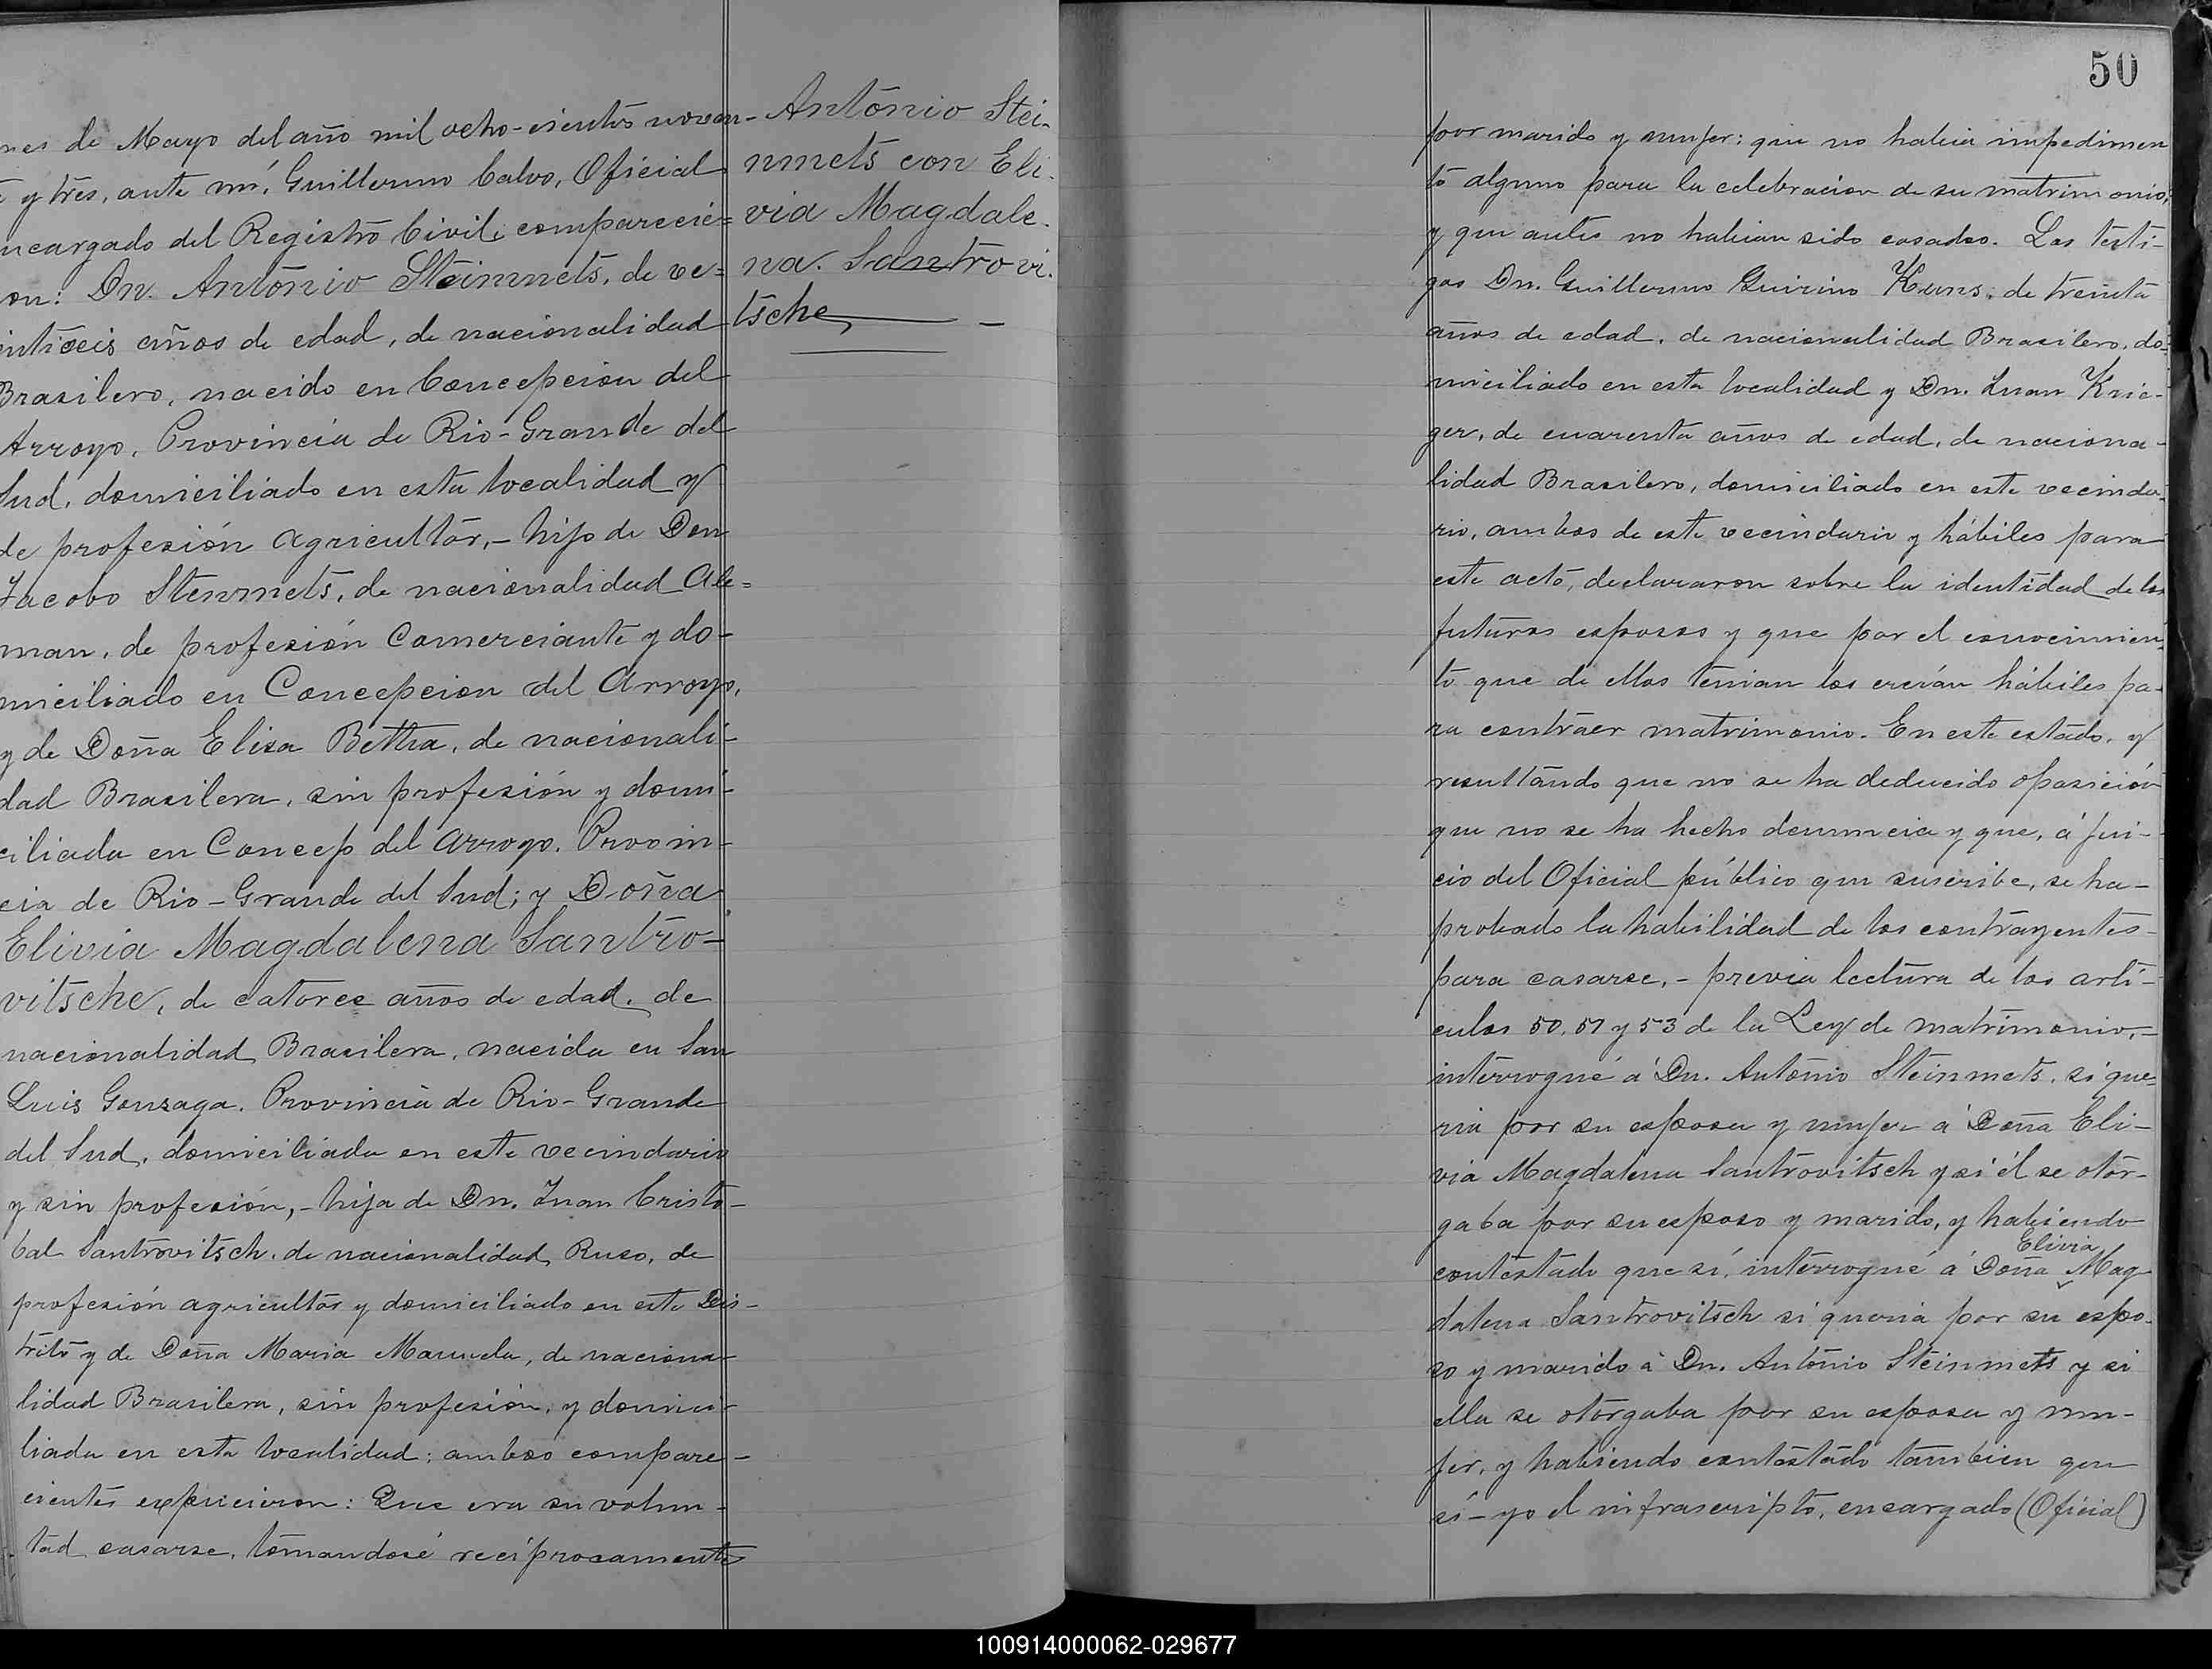 mes de Mayo del año mil ocho-cientos noven-
y tres, ante mí, Guillermo Calvo, Oficial
encargado del Registro Civil; comparecie=
ron: Dn. Antonio Steinmets, de ve=
intiseis años de edad, de nacionalidad
Brasilero, nacido en Concepcion del
Arroyo, Provincia de Rio-Grande del
Sud, domiciliado en esta localidad y
de profesión agricultor,- hijo de Don
Jacobo Stenmets, de nacionalidad Ale=
man, de profesión Comerciante y do-
miciliado en Concepcion del Arroyo,
y de Doña Elisa Bettra, de nacionali-
dad Brasilera, sin profesión y domi-
ciliada en Concep del Arroyo. Provin-
cia de Rio-Grande del Sud; y Doña
Elivia Magdalena Santro-
vitsche, de catorce años de edad, de
nacionalidad Brasilera, nacida en San
Luis Gonzaga. Provincia de Rio-Grande
del Sud, domiciliada en este vecindario
y sin profesión,- hija de Dn. Juan Cristo-
bal Santrovitsch, de nacionalidad Ruso, de
profesión agricultor y domiciliado en este Dis-
trito y de Doña Maria Manuela, de naciona-
lidad Brasilera, sin profesión, y domici-
liada en esta localidad; ambos compare-
cientes expusieron: Que era su volun-
tad casarse, tomandosé recíprocamente
Antonio Stei-
nmets con Eli-
via Magdale-
na. Santrovi-
tsche
50
por marido y mujer; que no habia impedimen
to alguno para la celebracion de su matrimonio,
y que antes no habian sido casados. Los testi-
gos Dn. Guillermo Quirino Kuns, de treinta
años de edad, de nacionalidad Brasilero, do-
miciliado en esta localidad y Dn. Juan Krie-
ger, de cuarenta años de edad, de naciona-
lidad Brasilero, domiciliado en este vecinda-
rio, ambos de este vecindario y hábiles para
este acto, declararon sobre la identidad de los
futuros esposos y que por el conocimien-
to que de ellos tenian los creían hábiles pa-
ra contraer matrimonio. En este estado, y
resultando que no se ha deducido oposición
que no se ha hecho denuncia y que, á jui-
cio del Oficial público que suscribe, se ha-
probado la habilidad de los contrayentes-
para casarse,- previa lectura de los artí-
culos 50, 51 y 53 de la Ley de matrimonio,-
interrogué á Dn. Antonio Steinmets, si que=
ria por su esposa y mujer á Doña Eli-
via Magdalena Santrovitsch y si él se otor-
gaba por su esposo y marido, y habiendo
contestado que sí, interrogué á Doña Elivia Mag
dalena Santrovitsch si queria por su espo-
so y marido á Dn. Antonio Steinmets y si
ella se otorgaba por su esposa y mu-
jer, y habiendo contestado tambien que
sí- yo el infrascripto, encargado (Oficial)
100914000062-029677